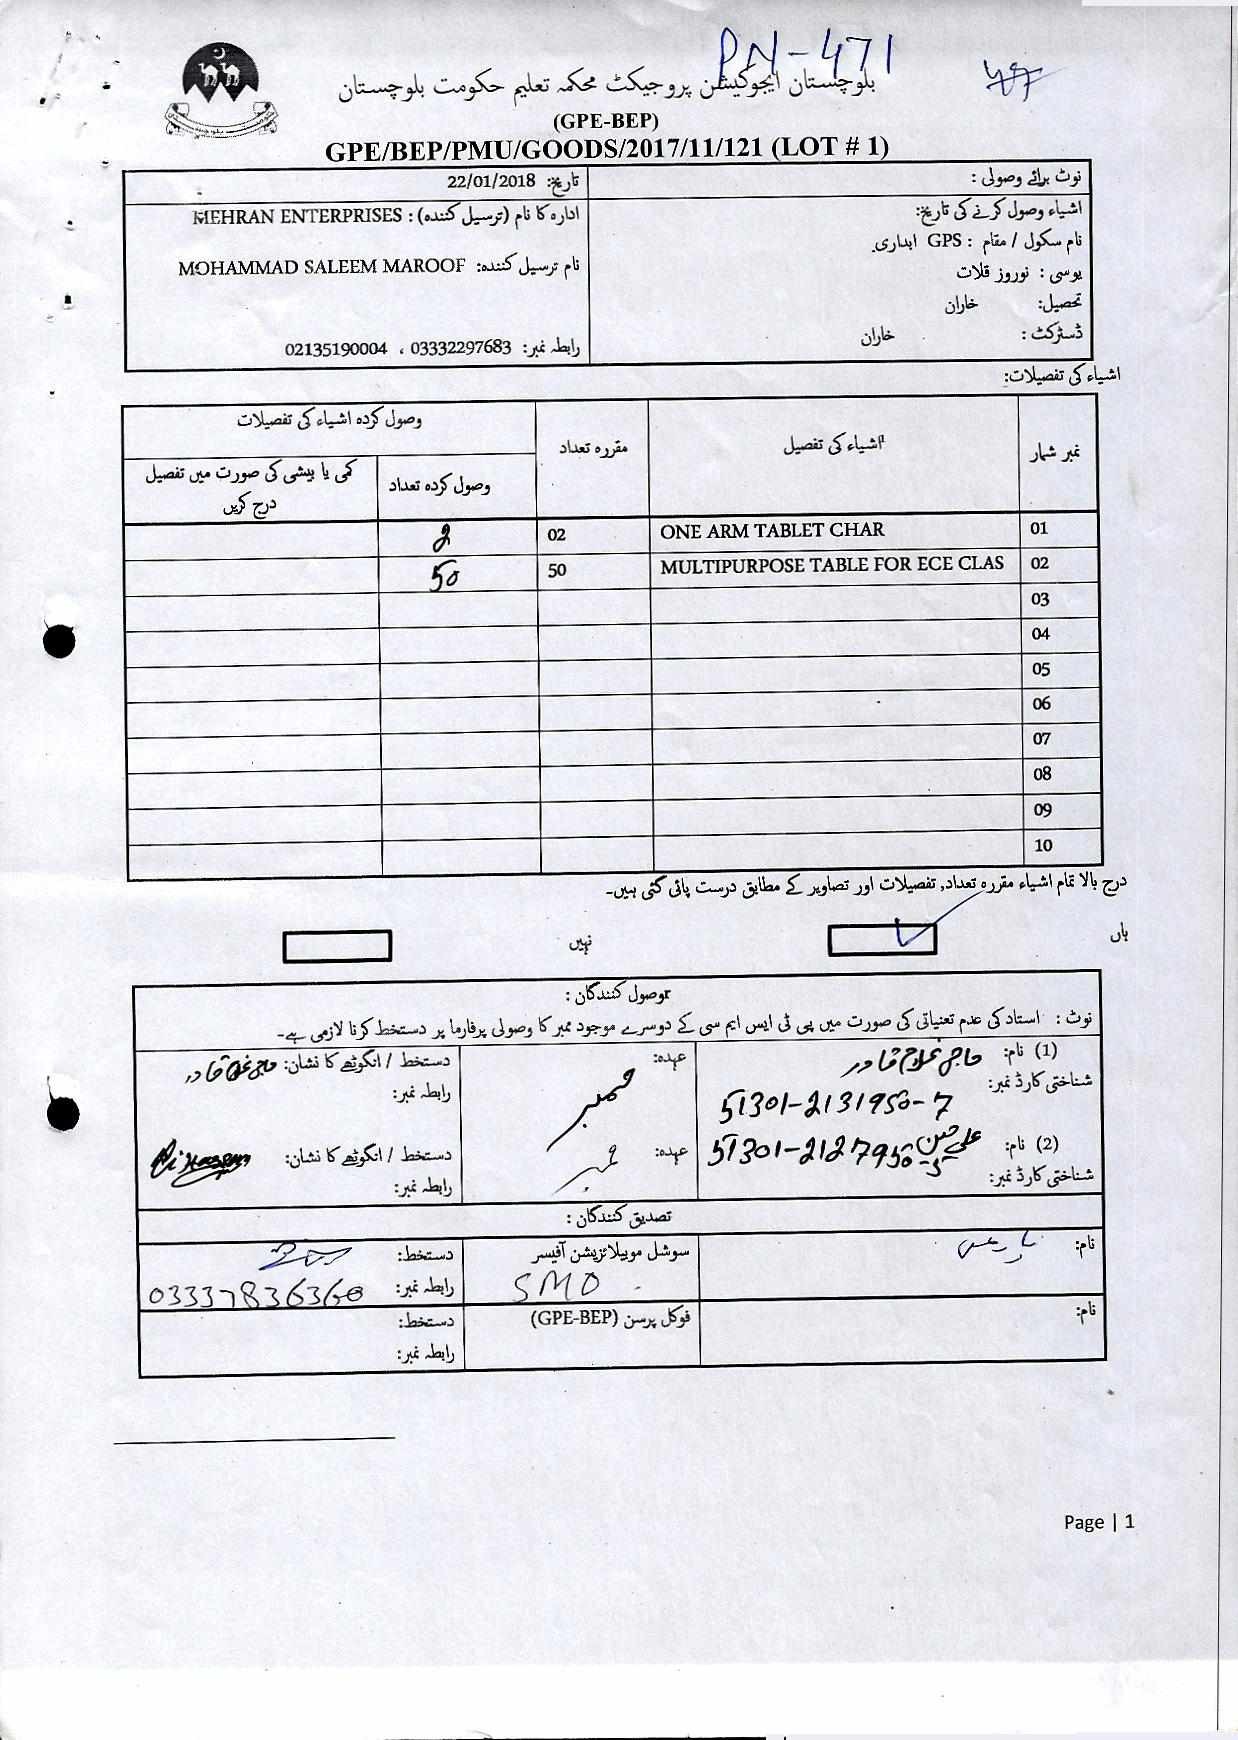 PN-471
بلوچستان ایجوکیشن پروجیکٹ محکمہ تعلیم حکومت بلوچستان
(GPE-BEP)
GPE/BEP/PMU/GOODS/2017/11/121 (LOT # 1)
نوٹ برائے وصولی :
تاریخ: 22/01/2018
اشیاء وصول کرنے کی تاریخ:
ادارہ کا نام (ترسیل کنندہ) : MEHRAN ENTERPRISES
نام سکول / مقام : GPS ابداری
نام ترسیل کنندہ: MOHAMMAD SALEEM MAROOF
یوسی : نوروز قلات
تحصیل: خاران
ڈسٹرکٹ : خاران
رابطہ نمبر: 03332297683 ، 02135190004
اشیاء کی تفصیلات:
نمبر شمار اشیاء کی تفصیل مقررہ تعداد وصول کردہ اشیاء کی تفصیلات
وصول کردہ تعداد کمی یا بیشی کی صورت میں تفصیل درج کریں
01 ONE ARM TABLET CHAR 02 2
02 MULTIPURPOSE TABLE FOR ECE CLAS 50 50
03
04
05
06
07
08
09
10
درج بالا تمام اشیاء مقررہ تعداد, تفصیلات اور تصاویر کے مطابق درست پائی گئی ہیں۔
ہاں نہیں
موصول کنندگان :
نوٹ : استاد کی عدم تعنیاتی کی صورت میں پی ٹی ایس ایم سی کے دوسرے موجود ممبر کا وصولی پرفارما پر دستخط کرنا لازمی ہے۔
(1) نام: حاجی غلام قادر عہدہ: ممبر دستخط / انگوٹھے کا نشان: حاجی غلام قادر
شناختی کارڈ نمبر: 51301-2131950-7 رابطہ نمبر:
(2) نام: علی حسین عہدہ: ممبر دستخط / انگوٹھے کا نشان:
شناختی کارڈ نمبر: 51301-2127950-5 رابطہ نمبر:
تصدیق کنندگان :
نام: سوشل موبیلائزیشن آفیسر دستخط:
SMO رابطہ نمبر: 03337836360
نام: فوکل پرسن (GPE-BEP) دستخط:
رابطہ نمبر:
Page | 1